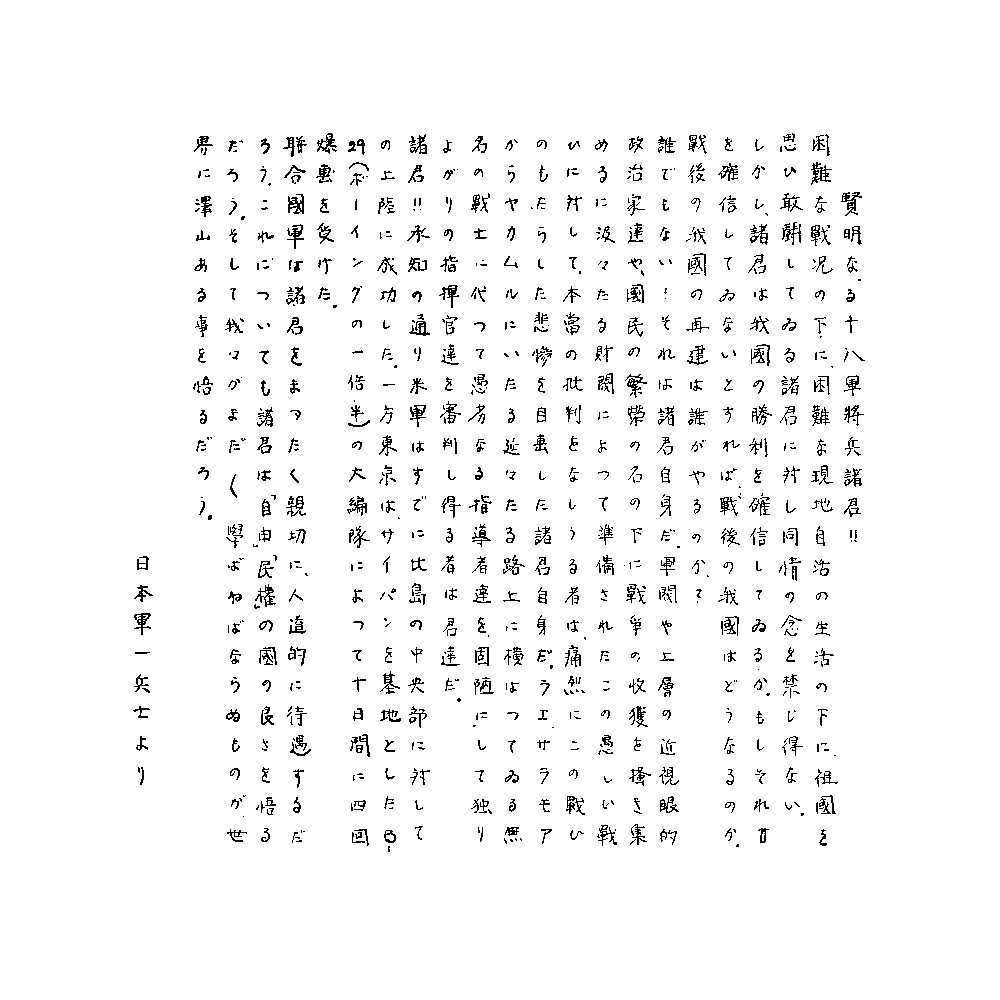 賢明なる十八軍將兵諸君!!
困難な戰況の下に、困難な現地自活の生活の下に、祖國を
思ひ敢鬪してゐる諸君に対し同情の念を禁じ得ない。
しかし、諸君は我國の勝利を確信してゐるか。もしそれ
を確信してゐないとすれば、戰後の我國はどうなるのか。
戰後の我國の再建は誰がやるのか?
誰でもない!それは諸君自身だ。軍閥や上層の近視眼的
政治家達や、國民の繁榮の名の下に戰爭の收獲を掻き集
めるに汲々たる財閥によつて準備されたこの愚しい戰
ひに対して、本當の批判をなしうる者は、痛烈にこの戰ひ
のもたらした悲慘を目擊した諸君自身だ。ラエ、サラモア
からヤカムルにいたる延々たる路上に横はつてゐる無
名の戰士に代つて愚劣なる指導者達を、固陋にして独り
よがりの指揮官達を審判し得る者は君達だ。
諸君!!承知の通り米軍はすでに比島の中央部に対して
の上陸に成功した。一方東京は、サイパンを基地としたB-
29(ボーイングの一倍半)の大編隊によつて十日間に四回
爆擊を受けた。
聯合國軍は諸君をまつたく親切に、人道的に待遇するだ
ろう。これについても諸君は「自由」「民權」の國の良さを悟る
だろう。そして我々がまだ〱學ばねばならぬものが、世
界に澤山ある事を悟るだろう。
日本軍一兵士より